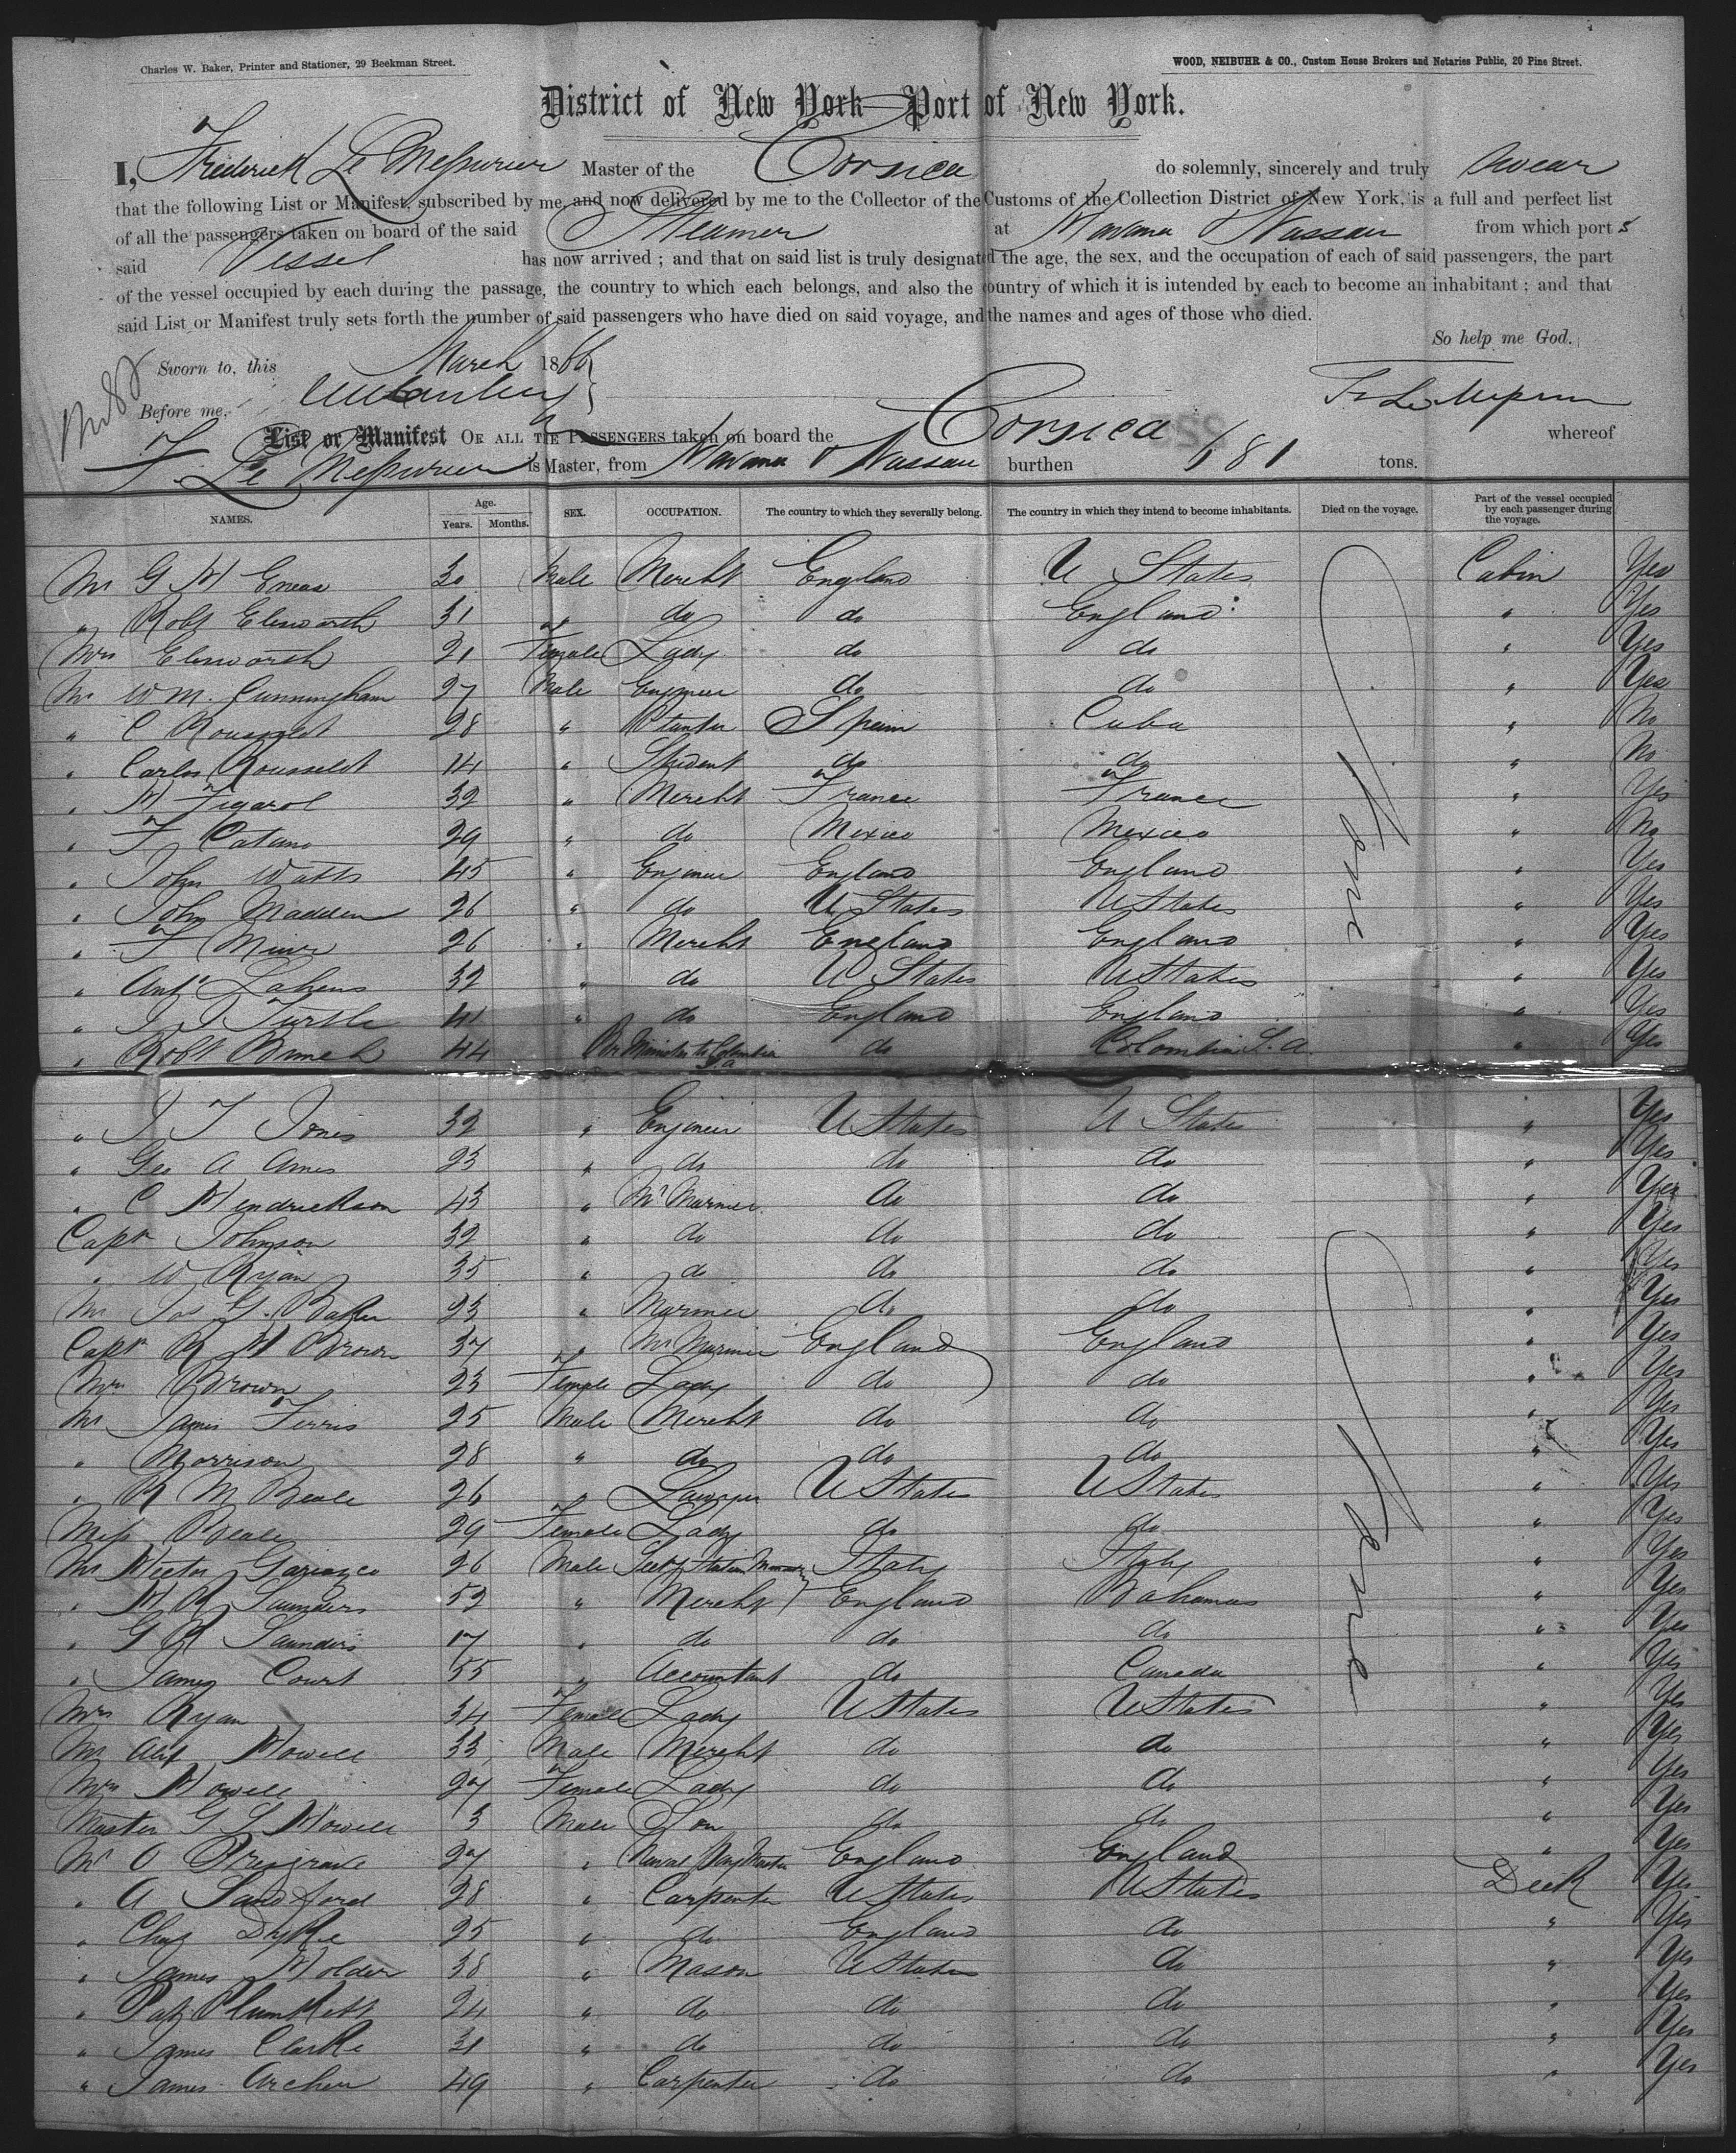 Charles W. Baker, Printer and Stationer, 29 Beekman Street.
WOOD, NEIBUHR & CO., Custom House Brokers and Notaries Public, 20 Pine Street.
District of New York—Port of New York.
I, Frederick Le Messurier Master of the Corsica do solemnly, sincerely and truly swear
that the following List or Manifest, subscribed by me, and now delivered by me to the Collector of the Customs of the Collection District of New York, is a full and perfect list
of all the passengers taken on board of the said Steamer at Havana & Nassau from which port s
said Vessel has now arrived ; and that on said list is truly designated the age, the sex, and the occupation of each of said passengers, the part
of the vessel occupied by each during the passage, the country to which each belongs, and also the country of which it is intended by each to become an inhabitant ; and that
said List or Manifest truly sets forth the number of said passengers who have died on said voyage, and the names and ages of those who died.
So help me God.
Sworn to, this March 1866
Before me,
List or Manifest OF ALL THE PASSENGERS taken on board the Corsica whereof
F. Le Messurier is Master, from Havana & Nassau burthen 681 tons.
NAMES. Age. Years. Months. SEX. OCCUPATION. The country to which they severally belong. The country in which they intend to become inhabitants. Died on the voyage. Part of the vessel occupied by each passenger during the voyage.
Mr G H Eneas 30 Male Mercht England U States Cabin Yes
" Robt Elsworth 31 " do do England " Yes
Mrs Elsworth 21 Female Lady do do " Yes
Mr W M. Cunningham 27 Male Engineer do do " Yes
" C Rousseldt 28 " Planter Spain Cuba " No
" Carlos Rousseldt 14 " Student do do " No
" H Figarol 32 " Mercht France France " Yes
" F Catano 29 " do Mexico Mexico " No
" John Watts 45 " Engineer England England " Yes
" John Madden 26 " do U States U States " Yes
" F Minor 26 " Mercht England England " Yes
" Anto Lahens 32 " do U States U States " Yes
" J J Turtle 41 " do England England " Yes
" Robt Bunch 44 Br Minister to Colombia S.a do Colombia S. a. " Yes
None
" J T Jones 32 " Engineer U States U States " Yes
" Geo A Ames 23 " do do do " Yes
" C Hendrickson 43 " Mr Mariner do do " Yes
Capt Johnson 32 " do do do " Yes
" W Ryan 35 " do do do " Yes
Mr Jas G. Baker 23 " Mariner do do " Yes
Capt R H Brown 37 " Mr Mariner England England " Yes
Mrs Brown 23 Female Lady do do " Yes
Mr James Ferris 25 Male Mercht do do " Yes
" Morrison 28 " do do do " Yes
" R M Beale 26 " Lawyer U States U States " Yes
Miss Beale 29 Female Lady do do " Yes
Mr Hector Garriazco 26 Male Italy Italy " Yes
" H R Saunders 52 " Mercht England Bahamas " Yes
" G R Saunders 17 " do do do " Yes
" James Court 55 " Accountant do Canada " Yes
Mrs Ryan 34 Female Lady U States U States " Yes
Mr Alex Howell 33 Male Mercht do do " Yes
Mrs Howell 27 Female Lady do do " Yes
Master G S Howell 3 Male Son do do " Yes
Mr O Presgrave 27 " Naval Pay Master England England " Yes
" A Sandford 28 " Carpenter U States U States Deck Yes
" Chas Dyke 25 " do England do " Yes
" James Holder 38 " Mason U States do " Yes
" Pat Plunkett 24 " do do do " Yes
" James Clarke 31 " do do do " Yes
" James Archer 49 " Carpenter do do " Yes
None